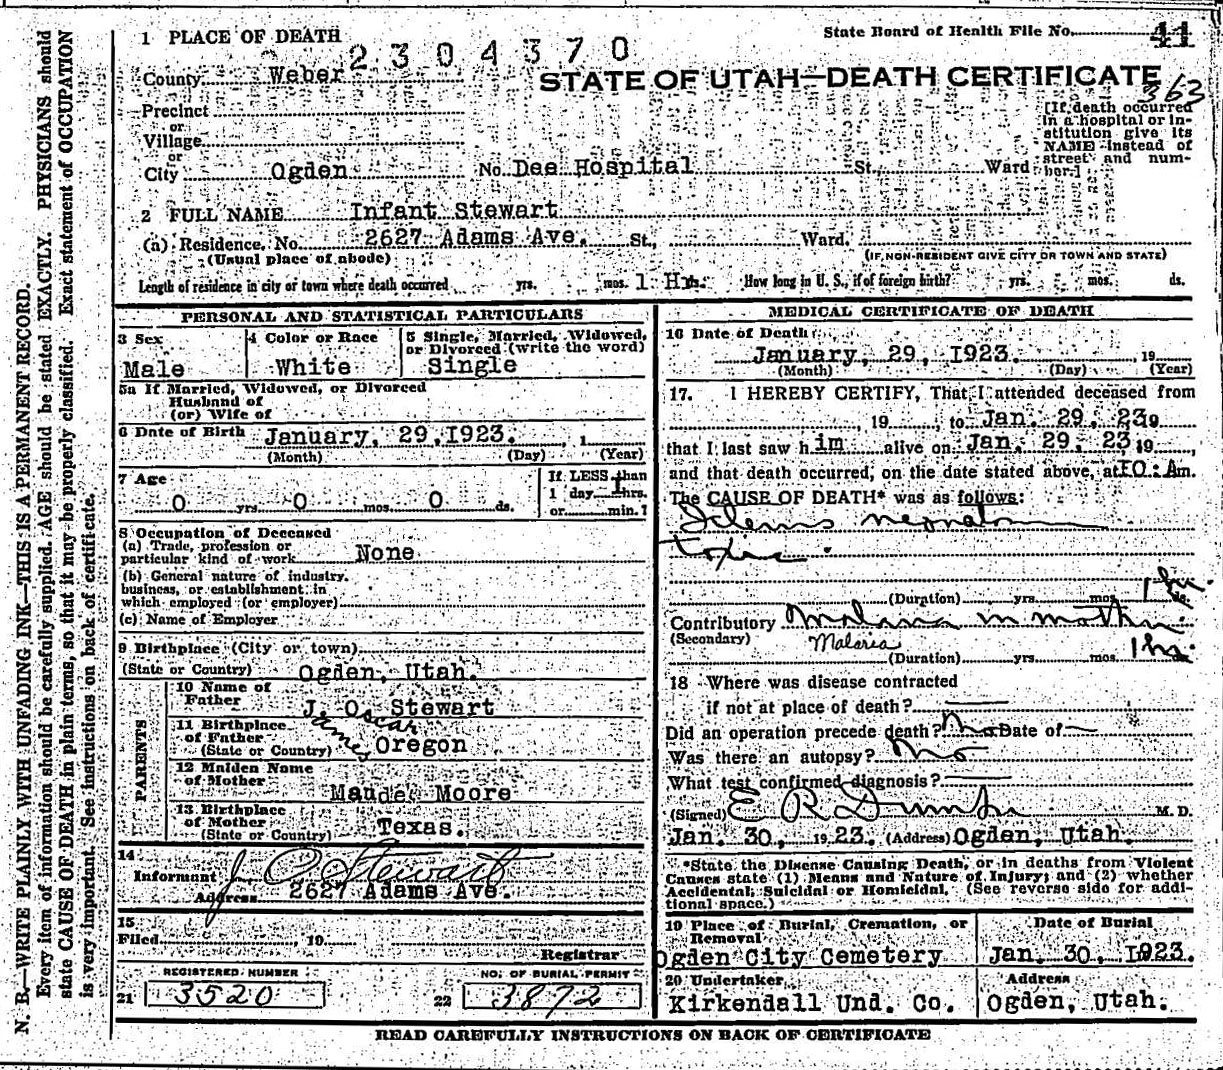 N. B.—WRITE PLAINLY WITH UNFADING INK—THIS IS A PERMANENT RECORD.
Every item of information should be carefully supplied. AGE should be stated EXACTLY. PHYSICIANS should
state CAUSE OF DEATH in plain terms, so that it may be properly classified. Exact statement of OCCUPATION
is very important. See instructions on back of certificate.
1 PLACE OF DEATH
State Board of Health File No. 41
2304370
County Weber
STATE OF UTAH—DEATH CERTIFICATE
363
Precinct
or
Village
or
City Ogden No. Dee Hospital St. Ward
[If death occurred
in a hospital or in-
stitution give its
NAME instead of
street and num-
ber.]
2 FULL NAME Infant Stewart
(a) Residence, No. 2627 Adams Ave. St., Ward.
(Usual place of abode)
(IF NON-RESIDENT GIVE CITY OR TOWN AND STATE)
Length of residence in city or town where death occurred yrs. mos. 1 Hr. ds. How long in U. S., if of foreign birth? yrs. mos. ds.
PERSONAL AND STATISTICAL PARTICULARS
3 Sex
Male
4 Color or Race
White
5 Single, Married, Widowed,
or Divorced (write the word)
Single
5a If Married, Widowed, or Divorced
Husband of
(or) Wife of
6 Date of Birth January, 29, 1923. , 1
(Month) (Day) (Year)
7 Age
0 yrs. 0 mos. 0 ds.
If LESS than
1 day 1 hrs.
or min.?
8 Occupation of Deceased
(a) Trade, profession or
particular kind of work None
(b) General nature of industry,
business, or establishment in
which employed (or employer)
(c) Name of Employer
9 Birthplace (City or town)
(State or Country) Ogden, Utah.
PARENTS
10 Name of
Father J. O. Stewart
James Oscar
11 Birthplace
of Father
(State or Country) Oregon
12 Maiden Name
of Mother
Maude Moore
13 Birthplace
of Mother
(State or Country) Texas.
14
Informant J O Stewart
Address 2627 Adams Ave.
15
Filed , 19
Registrar
REGISTERED NUMBER
21 3520
NO. OF BURIAL PERMIT
22 3872
MEDICAL CERTIFICATE OF DEATH
16 Date of Death
January, 29, 1923. , 19
(Month) (Day) (Year)
17. I HEREBY CERTIFY, That I attended deceased from
, 19 , to Jan. 29, 23, 19
that I last saw h im alive on Jan. 29, 23, 19 ,
and that death occurred, on the date stated above, at 10: Am.
The CAUSE OF DEATH* was as follows:
neonatorum
toxic
(Duration) yrs. mos. 1 hr. ds.
Contributory Malaria in mother
(Secondary) Malaria
(Duration) yrs. mos. 1 hr. ds.
18 Where was disease contracted
if not at place of death?
Did an operation precede death? No Date of
Was there an autopsy? No
What test confirmed diagnosis?
(Signed) E R Dumke M. D.
Jan. 30, , 19 23. (Address) Ogden, Utah.
*State the Disease Causing Death, or in deaths from Violent
Causes state (1) Means and Nature of Injury; and (2) whether
Accidental, Suicidal or Homicidal. (See reverse side for addi-
tional space.)
19 Place of Burial, Cremation, or
Removal
Ogden City Cemetery
Date of Burial
Jan. 30, 1923.
20 Undertaker
Kirkendall Und. Co.
Address
Ogden, Utah.
READ CAREFULLY INSTRUCTIONS ON BACK OF CERTIFICATE